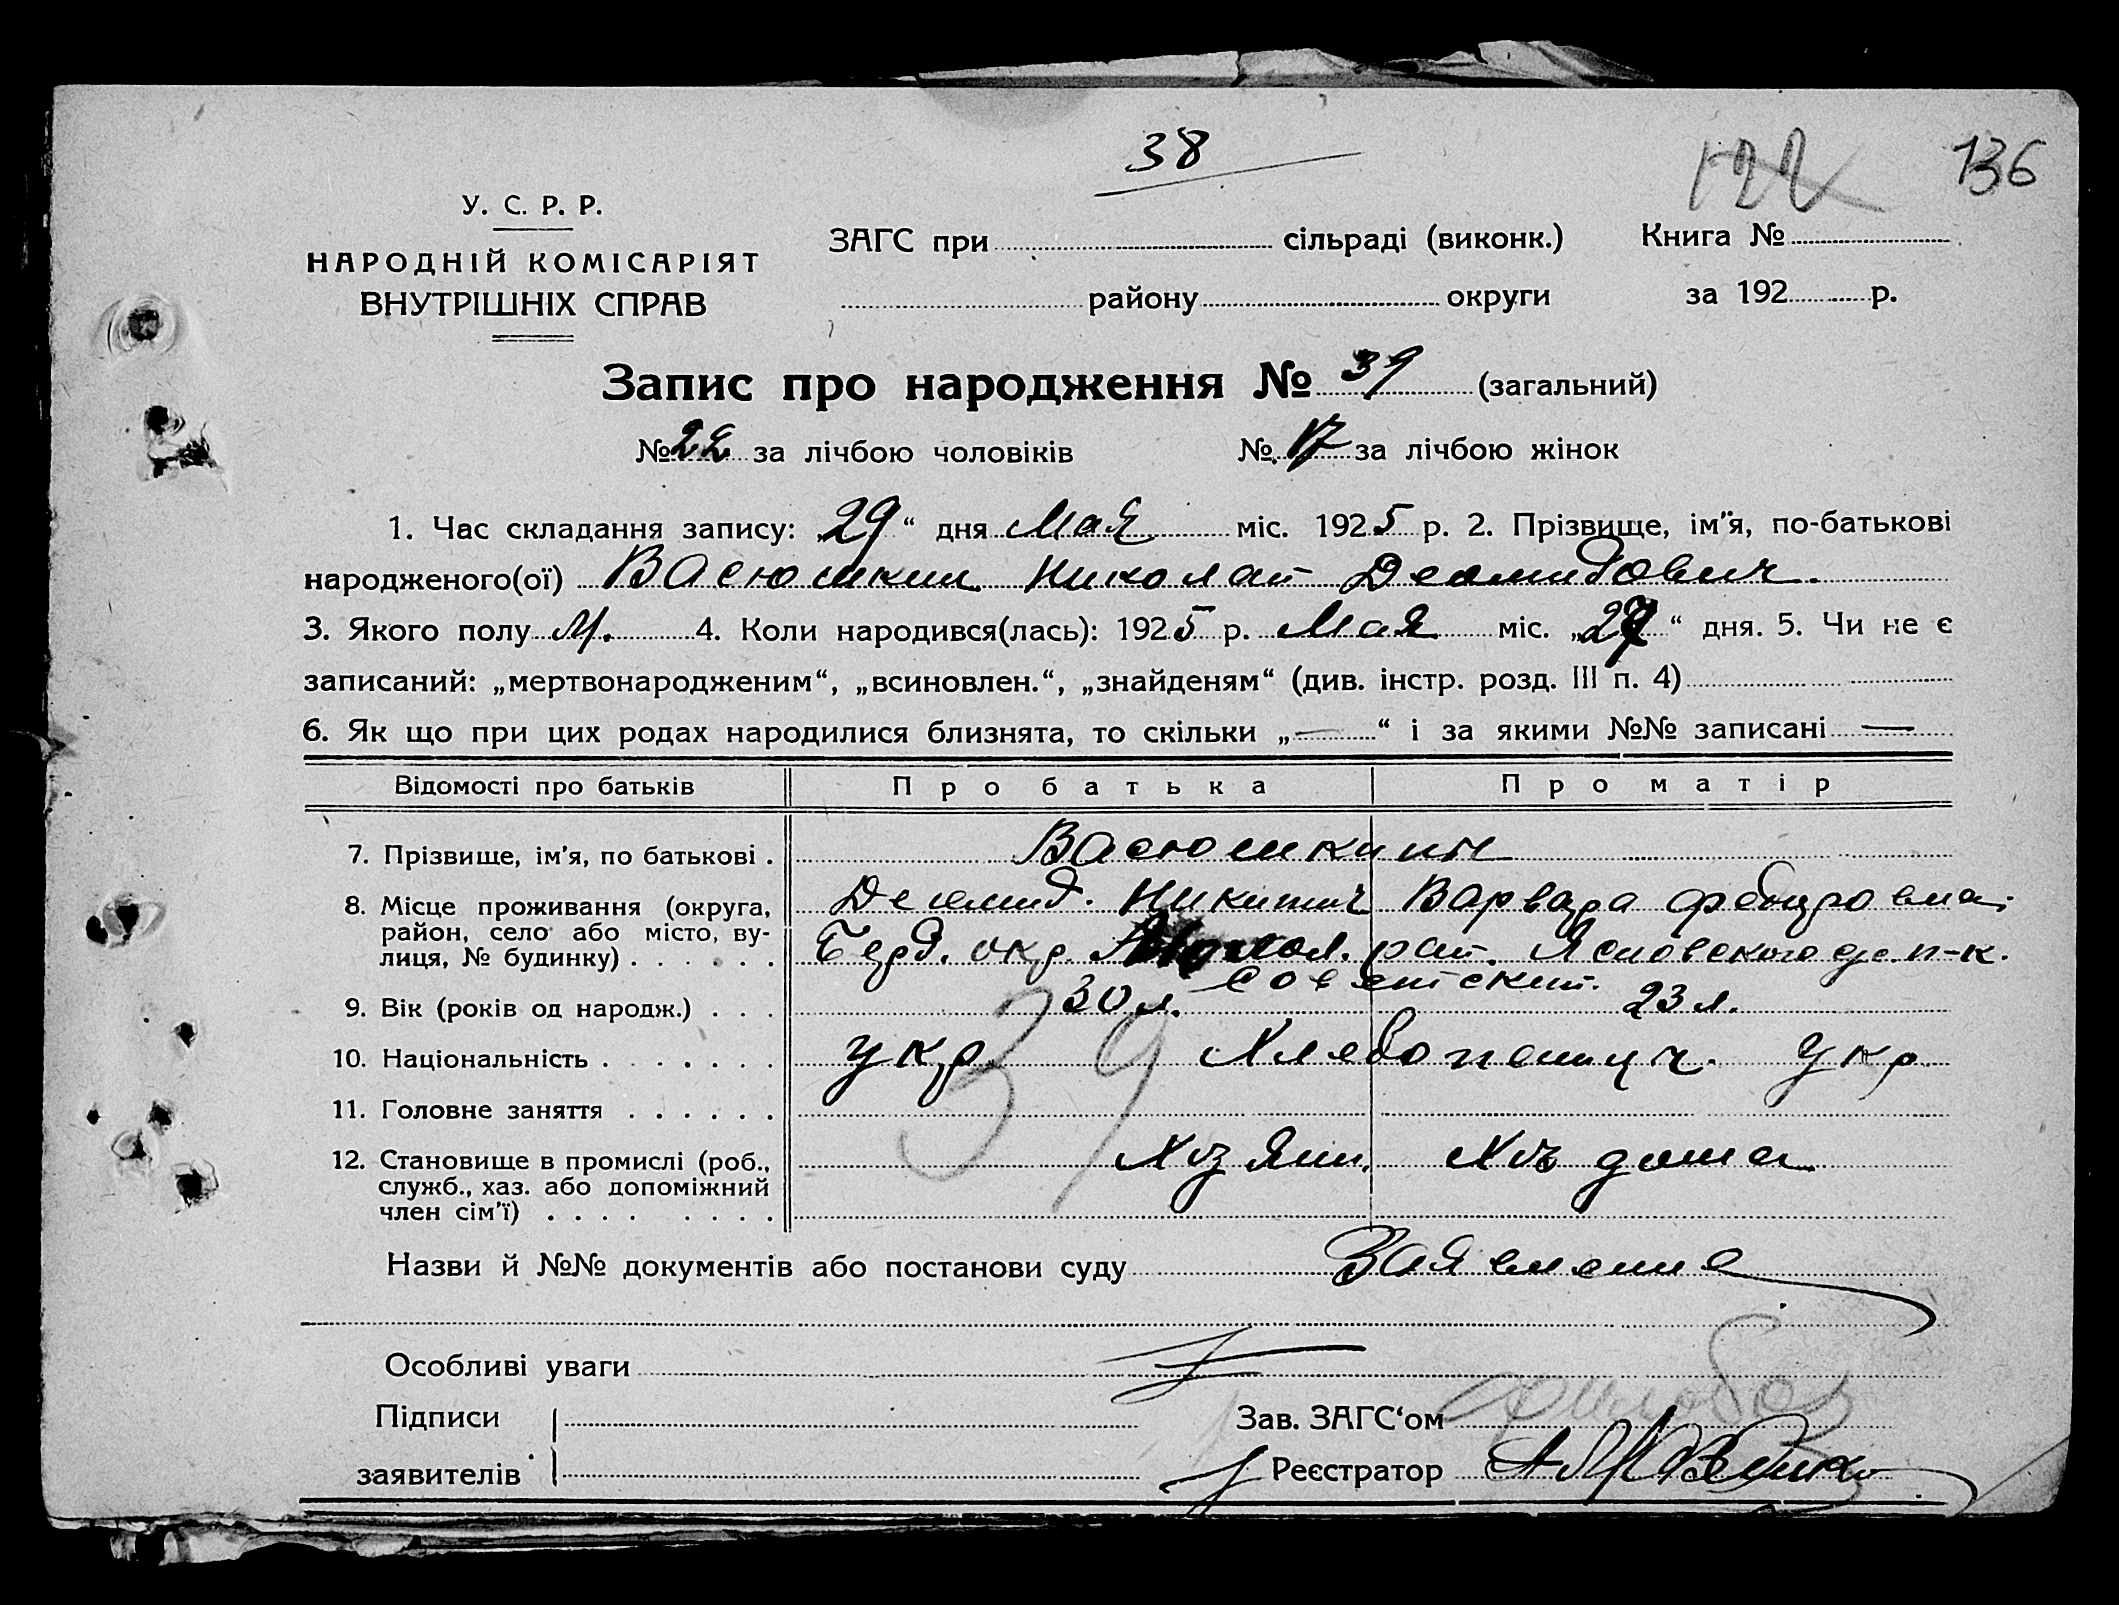 38
122 136
У. С. Р. Р.
НАРОДНІЙ КОМІСАРІЯТ
ВНУТРІШНІХ СПРАВ
ЗАГС при сільраді (виконк.) Книга №
району округи за 192 р.
Запис про народження № 39 (загальний)
№ 22 за лічбою чоловіків № 17 за лічбою жінок
1. Час складання запису: „29“ дня Мая міс. 1925 р. 2. Прізвище, ім'я, по-батькові
народженого(ої) Васюшкин Николай Деомидович
3. Якого полу М. 4. Коли народився(лась): 1925 р. Мая міс. „27“ дня. 5. Чи не є
записаний: „мертвонародженим“, „всиновлен.“, „знайденям“ (див. інстр. розд. III п. 4)
6. Як що при цих родах народилися близнята, то скільки „—“ і за якими №№ записані —
Відомості про батьків Про батька Про матір
7. Прізвище, ім'я, по батькові . Васюшкин
8. Місце проживання (округа, Никитич Варвара Федоровна
район, село або місто, ву- окр. рай. п-к.
лиця, № будинку) . . . . . . Советский.
9. Вік (років од народж.) . . . 30 л. 23 л.
10. Національність . . . . . . . укр. Хлебопашец. Укр.
11. Головне заняття . . . . . .
39
12. Становище в промислі (роб., Хозяин. дома
служб., хаз. або допоміжний
член сім'ї) . . . . . . . .
Назви й №№ документів або постанови суду Заявление
Особливі уваги
Підписи Зав. ЗАГС'ом
заявителів Реєстратор